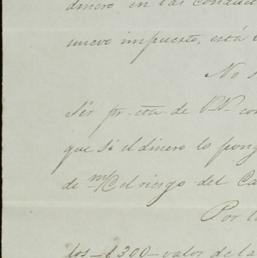 dinero en las conduct
nuevo impuesto, está
No
Sér pr. cta de VV con
que si el dinero lo pong
de m/c el riesgo del Ca
Por
los £300 valor de la